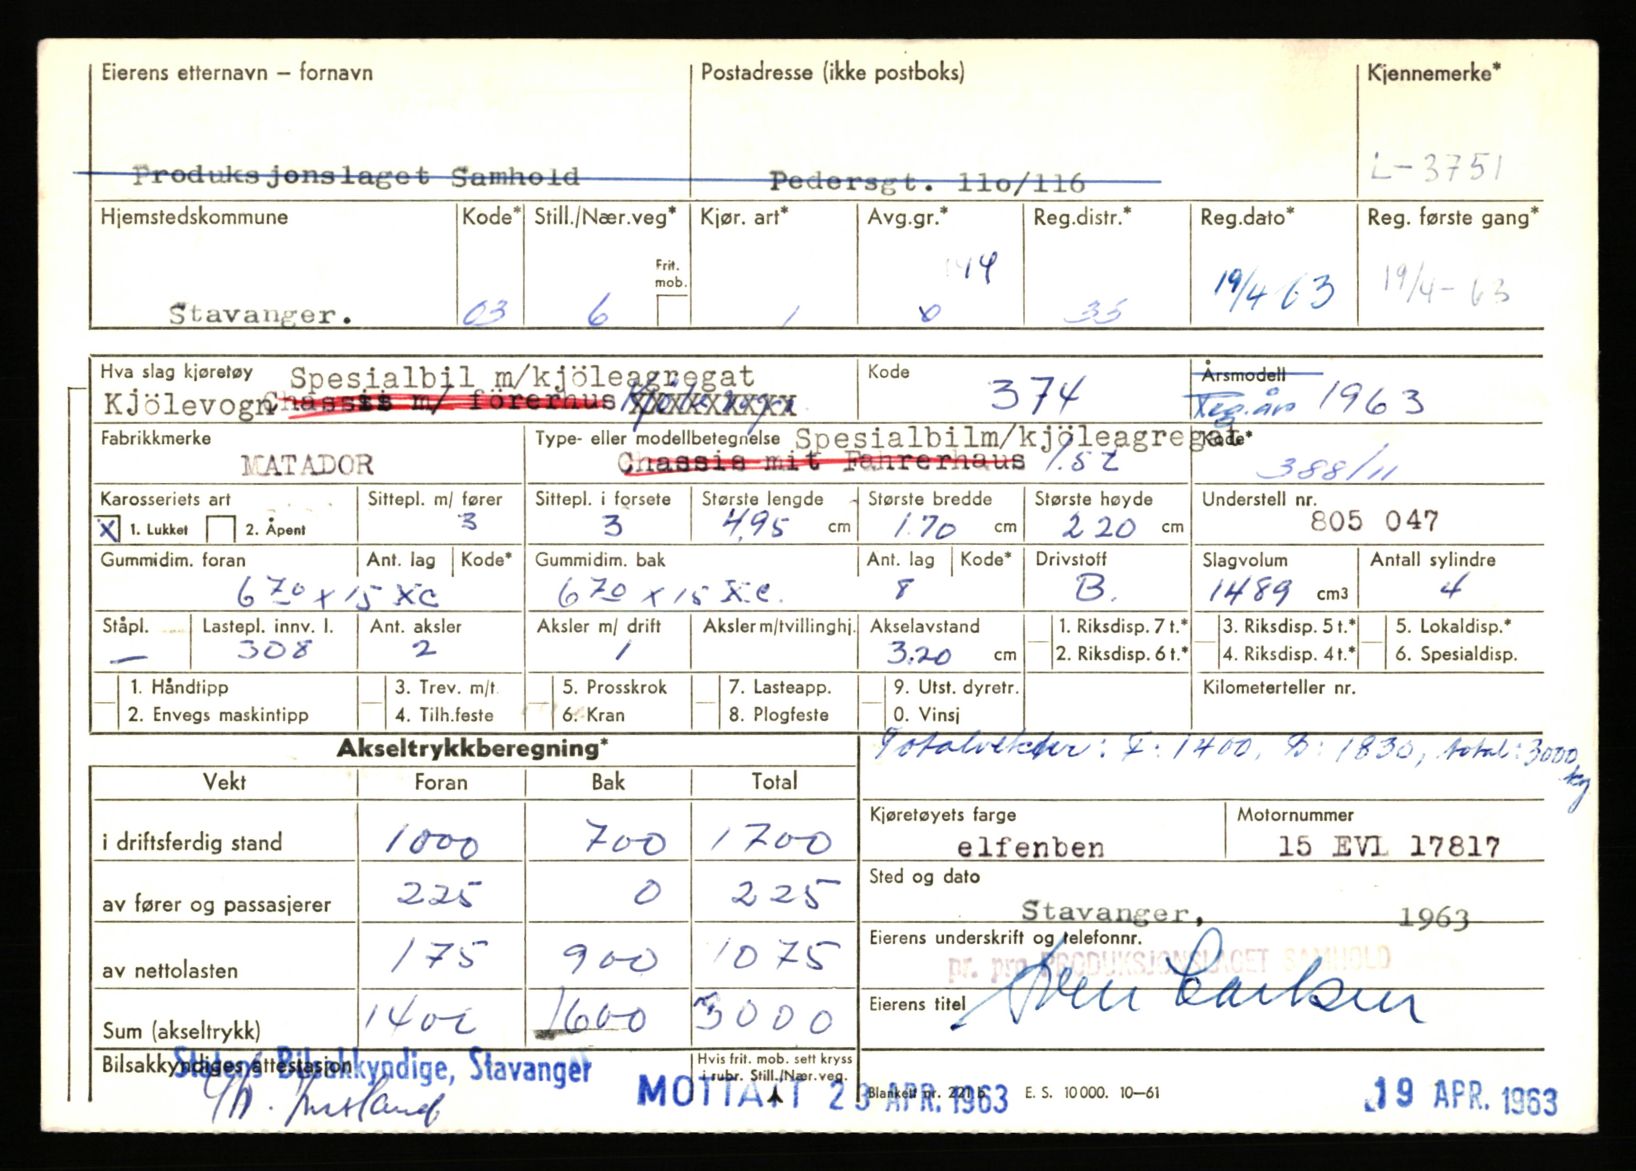 Eierens etternavn – fornavn Postadresse (ikke postboks) Kjennemerke*
Produksjonslaget Samhold Pedersgt. 11o/116 L-3751
Hjemstedskommune Kode* Still./Nær.veg* Kjør. art* Avg.gr.* Reg.distr.* Reg.dato* Reg. første gang*
Frit. mob.
Stavanger. 03 6 1 0 144 35 19/4 63 19/4-63
Hva slag kjøretøy Spesialbil m/kjöleagregat Kode 374 Årsmodell
Kjölevogn Chassis m/ förerhus XXXXXXXXX Reg.år 1963
Fabrikkmerke Type- eller modellbetegnelse Spesialbilm/kjöleagregat Kode*
MATADOR Chassis mit Fahrerhaus 1.5t 388/11
Karosseriets art Sittepl. m/ fører Sittepl. i forsete Største lengde Største bredde Største høyde Understell nr.
X 1. Lukket 2. Åpent 3 3 4,95 cm 1.70 cm 2 20 cm 805 047
Gummidim. foran Ant. lag Kode* Gummidim. bak Ant. lag Kode* Drivstoff Slagvolum Antall sylindre
670 x 15 XC 670 x 15 X.C. 8 B. 1489 cm3 4
Ståpl. Lastepl. innv. l. Ant. aksler Aksler m/ drift Aksler m/tvillinghj. Akselavstand 1. Riksdisp. 7 t.* 3. Riksdisp. 5 t.* 5. Lokaldisp.*
— 308 2 1 3.20 cm 2. Riksdisp. 6 t.* 4. Riksdisp. 4 t.* 6. Spesialdisp.
1. Håndtipp 3. Trev. m/t. 5. Prosskrok 7. Lasteapp. 9. Utst. dyretr. Kilometerteller nr.
2. Envegs maskintipp 4. Tilh.feste 6. Kran 8. Plogfeste 0. Vinsj
Akseltrykkberegning* Totalvekter: F: 1400, B: 1830, total: 3000 kg
Vekt Foran Bak Total
Kjøretøyets farge Motornummer
i driftsferdig stand 1000 700 1700 elfenben 15 EVL 17817
Sted og dato
av fører og passasjerer 225 0 225 Stavanger, 1963
Eierens underskrift og telefonnr.
av nettolasten 175 900 1075 pr. pro PRODUKSJONSLAGET SAMHOLD
Eierens titel
Sum (akseltrykk) 1400 1600 3000
Bilsakkyndiges attestasjon Statens Bilsakkyndige, Stavanger Hvis frit. mob. sett kryss i rubr. Still./Nær.veg.
MOTTATT 23 APR. 1963 Blankett nr. 221 b E. S. 10 000. 10—61 19 APR. 1963